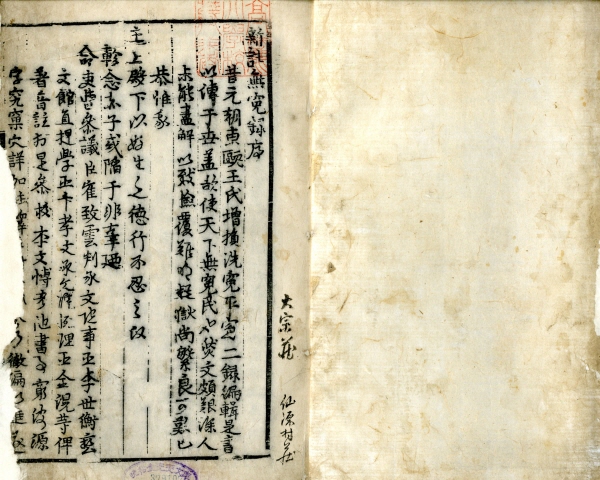 新註無冤錄序
昔元朝東甌王氏增損洗冤平冤二錄編輯是書
以傳于世盖欲使天下無冤民也然文頗艱澁人
未能盡解以致檢覆難明疑獄尚繁良可嘆已
恭惟我
主上殿下以好生之德行不忍之政
軫念赤子或陷于非辜廼
命吏曹叅議臣崔致雲判承文院事臣李世衡藝
文館直提學臣卞孝文承文院校理臣金滉等俾
著音註於是叅校本文博考他書窮波源
字究窠穴詳加註釋
大宗藏
仙源村藏